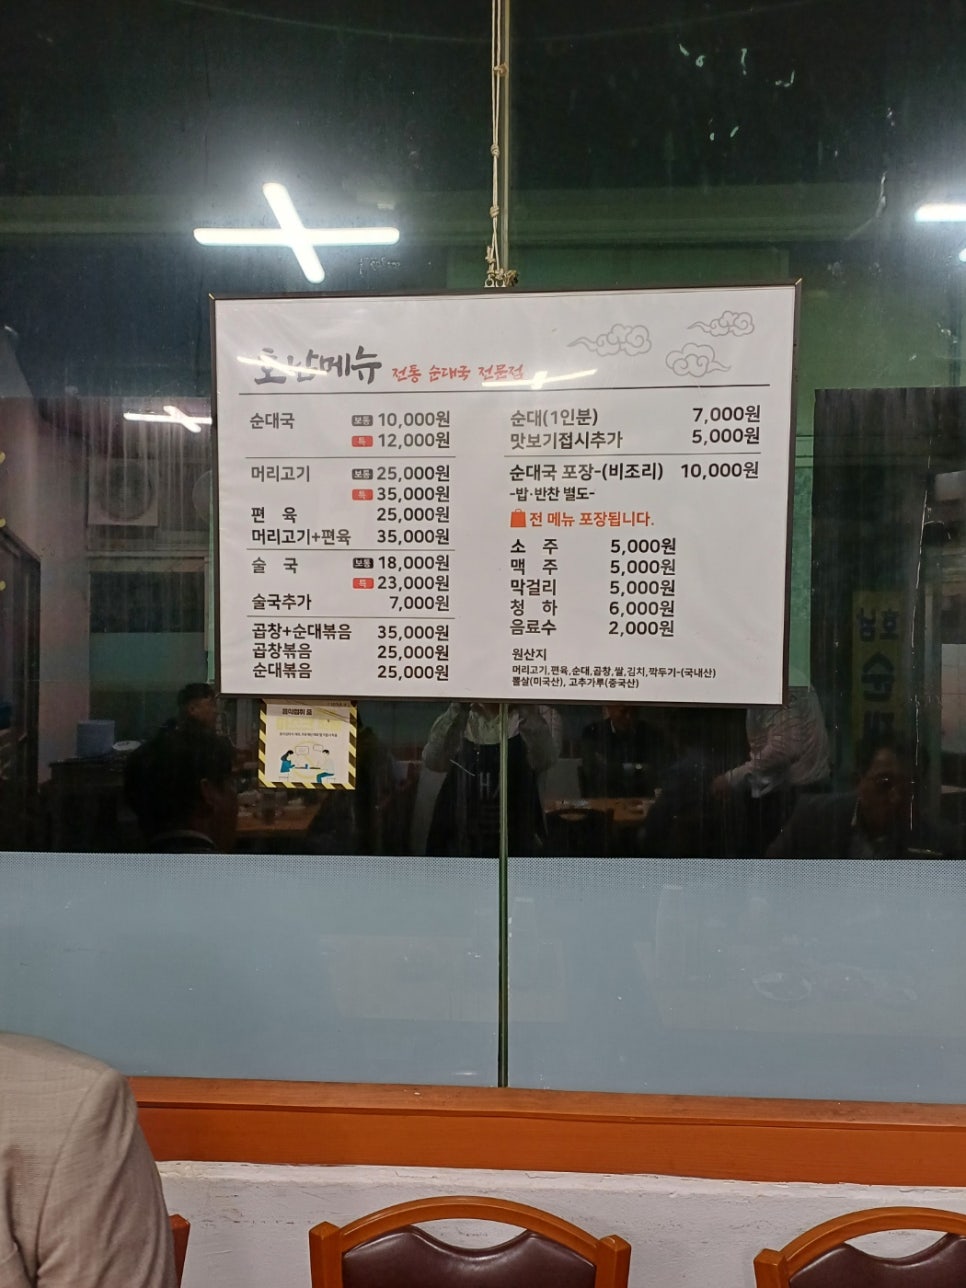 호남메뉴 전통 순대국 전문점
순대국 보통 10,000원
특 12,000원
머리고기 보통 25,000원
특 35,000원
편 육 25,000원
머리고기+편육 35,000원
술 국 보통 18,000원
특 23,000원
술국추가 7,000원
곱창+순대볶음 35,000원
곱창볶음 25,000원
순대볶음 25,000원
순대(1인분) 7,000원
맛보기접시추가 5,000원
순대국 포장-(비조리) 10,000원
-밥·반찬 별도-
전 메뉴 포장됩니다.
소 주 5,000원
맥 주 5,000원
막걸리 5,000원
청 하 6,000원
음료수 2,000원
원산지
머리고기,편육,순대,곱창,쌀,김치,깍두기-(국내산)
뽈살(미국산), 고추가루(중국산)